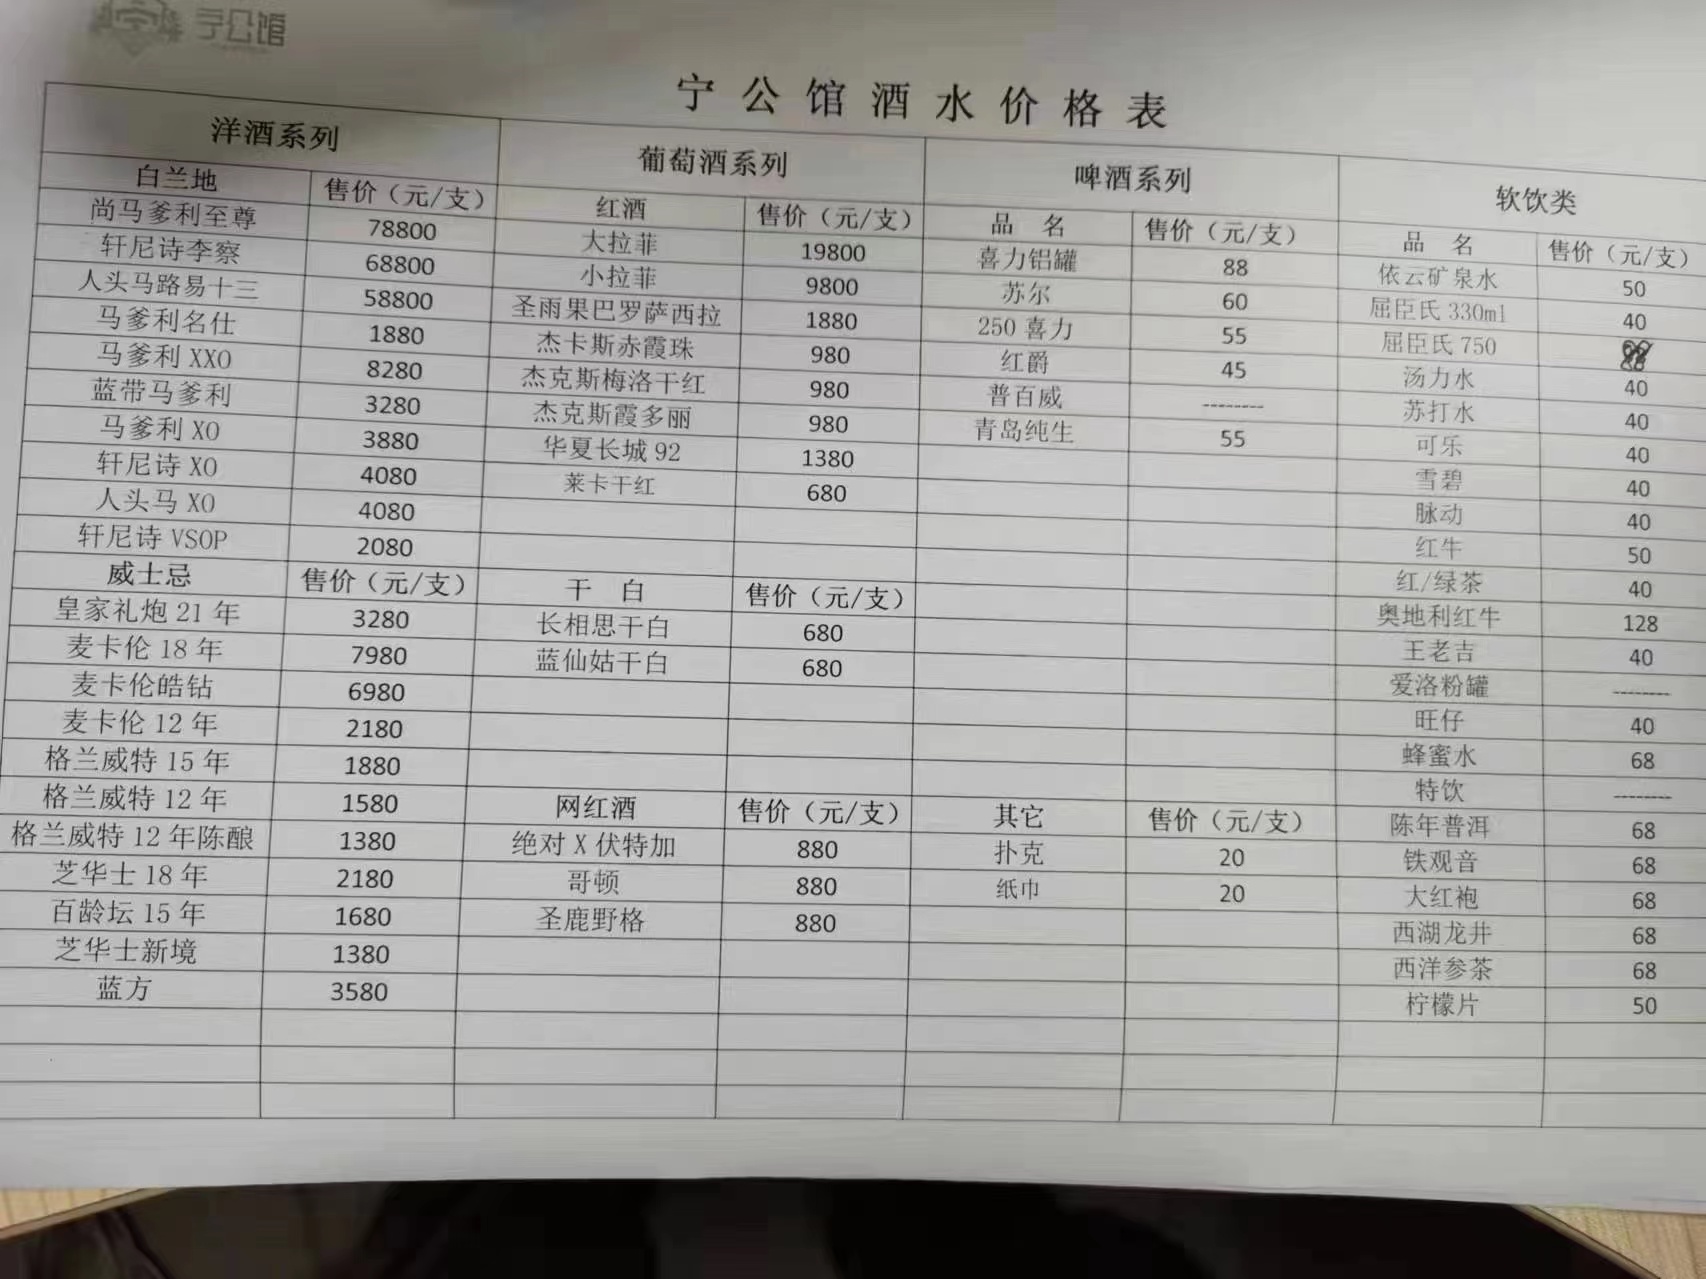 宁公馆
宁公馆酒水价格表
洋酒系列
白兰地 售价（元/支）
尚马爹利至尊 78800
轩尼诗李察 68800
人头马路易十三 58800
马爹利名仕 1880
马爹利 XXO 8280
蓝带马爹利 3280
马爹利 XO 3880
轩尼诗 XO 4080
人头马 XO 4080
轩尼诗 VSOP 2080
威士忌 售价（元/支）
皇家礼炮 21 年 3280
麦卡伦 18 年 7980
麦卡伦皓钻 6980
麦卡伦 12 年 2180
格兰威特 15 年 1880
格兰威特 12 年 1580
格兰威特 12 年陈酿 1380
芝华士 18 年 2180
百龄坛 15 年 1680
芝华士新境 1380
蓝方 3580
葡萄酒系列
红酒 售价（元/支）
大拉菲 19800
小拉菲 9800
圣雨果巴罗萨西拉 1880
杰卡斯赤霞珠 980
杰克斯梅洛干红 980
杰克斯霞多丽 980
华夏长城 92 1380
莱卡干红 680
干 白 售价（元/支）
长相思干白 680
蓝仙姑干白 680
网红酒 售价（元/支）
绝对 X 伏特加 880
哥顿 880
圣鹿野格 880
啤酒系列
品 名 售价（元/支）
喜力铝罐 88
苏尔 60
250 喜力 55
红爵 45
普百威 --------
青岛纯生 55
其它 售价（元/支）
扑克 20
纸巾 20
软饮类
品 名 售价（元/支）
依云矿泉水 50
屈臣氏 330ml 40
屈臣氏 750
汤力水 40
苏打水 40
可乐 40
雪碧 40
脉动 40
红牛 50
红/绿茶 40
奥地利红牛 128
王老吉 40
爱洛粉罐 --------
旺仔 40
蜂蜜水 68
特饮 --------
陈年普洱 68
铁观音 68
大红袍 68
西湖龙井 68
西洋参茶 68
柠檬片 50